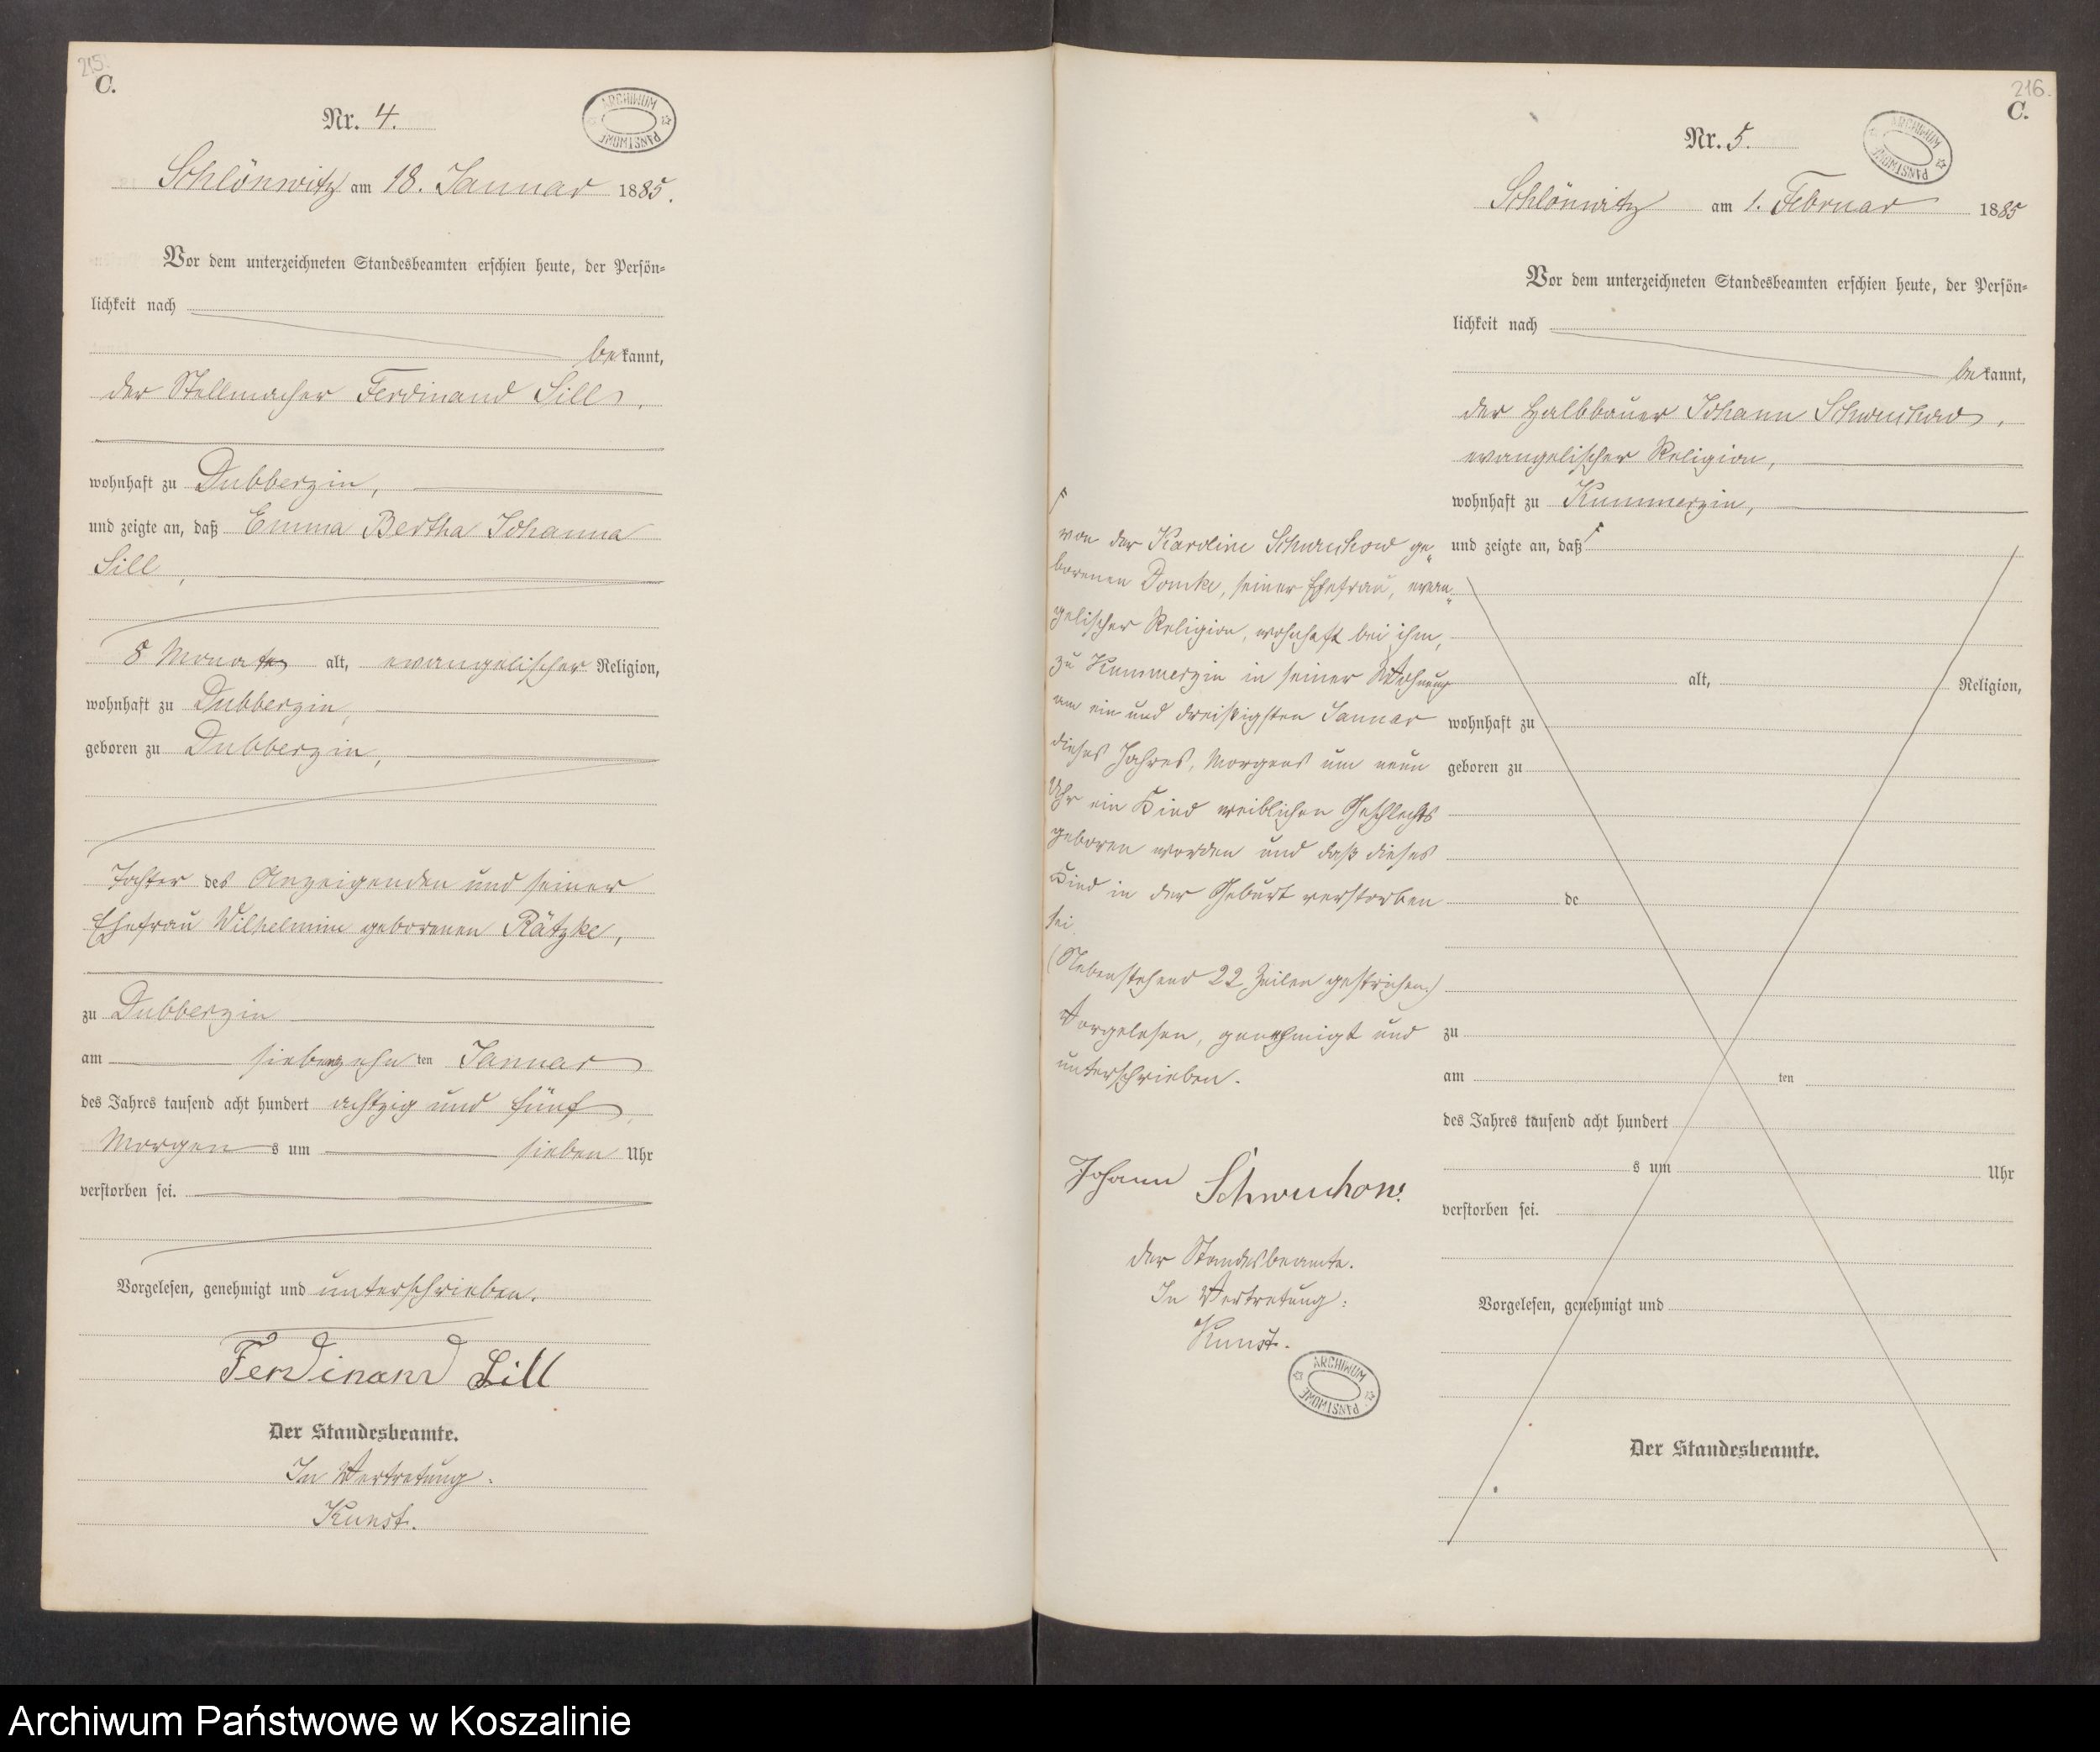 215.
C.
Nr. 4.
ARCHIWUM PAŃSTWOWE
Schlönwitz am 18. Januar 1885.
Vor dem unterzeichneten Standesbeamten erschien heute, der Persön-
lichkeit nach
bekannt,
der Stellmacher Ferdinand Sill,
wohnhaft zu Dubberzin,
und zeigte an, daß Emma Bertha Johanna
Sill,
8 Monate alt, evangelischer Religion,
wohnhaft zu Dubberzin,
geboren zu Dubberzin,
Tochter des Anzeigenden und seiner
Ehefrau Wilhelmine geborenen Rätzke,
zu Dubberzin
am siebenzehnten Januar
des Jahres tausend acht hundert achtzig und fünf,
Morgens um sieben Uhr
verstorben sei.
Vorgelesen, genehmigt und unterschrieben.
Ferdinand Sill
Der Standesbeamte.
In Vertretung:
Kunst.
216.
C.
Nr. 5.
ARCHIWUM PAŃSTWOWE
Schlönwitz am 1. Februar 1885
Vor dem unterzeichneten Standesbeamten erschien heute, der Persön-
lichkeit nach
bekannt,
der Halbbauer Johann Schwuchow,
evangelischer Religion,
wohnhaft zu Kummerzin,
und zeigte an, daß
alt, Religion,
wohnhaft zu
geboren zu
de
zu
am ten
des Jahres tausend acht hundert
s um Uhr
verstorben sei.
Vorgelesen, genehmigt und
Der Standesbeamte.
von der Karoline Schwuchow ge„
borenen Domke, seiner Ehefrau, evan„
gelischer Religion, wohnhaft bei ihm,
zu Kummerzin in seiner Wohnung
am ein und dreißigsten Januar
dieses Jahres, Morgens um neun
Uhr ein Kind weiblichen Geschlechts
geboren worden und daß dieses
Kind in der Geburt verstorben
sei.
(Nebenstehend 22 Zeilen gestrichen.)
Vorgelesen, genehmigt und
unterschrieben.
Johann Schwuchow.
Der Standesbeamte.
In Vertretung:
Kunst.
ARCHIWUM PAŃSTWOWE
Archiwum Państwowe w Koszalinie